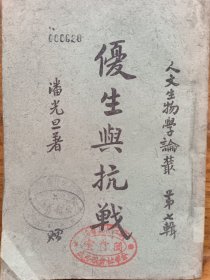 000620
人文生物學論叢 第七輯
優生與抗戰
潘光旦著